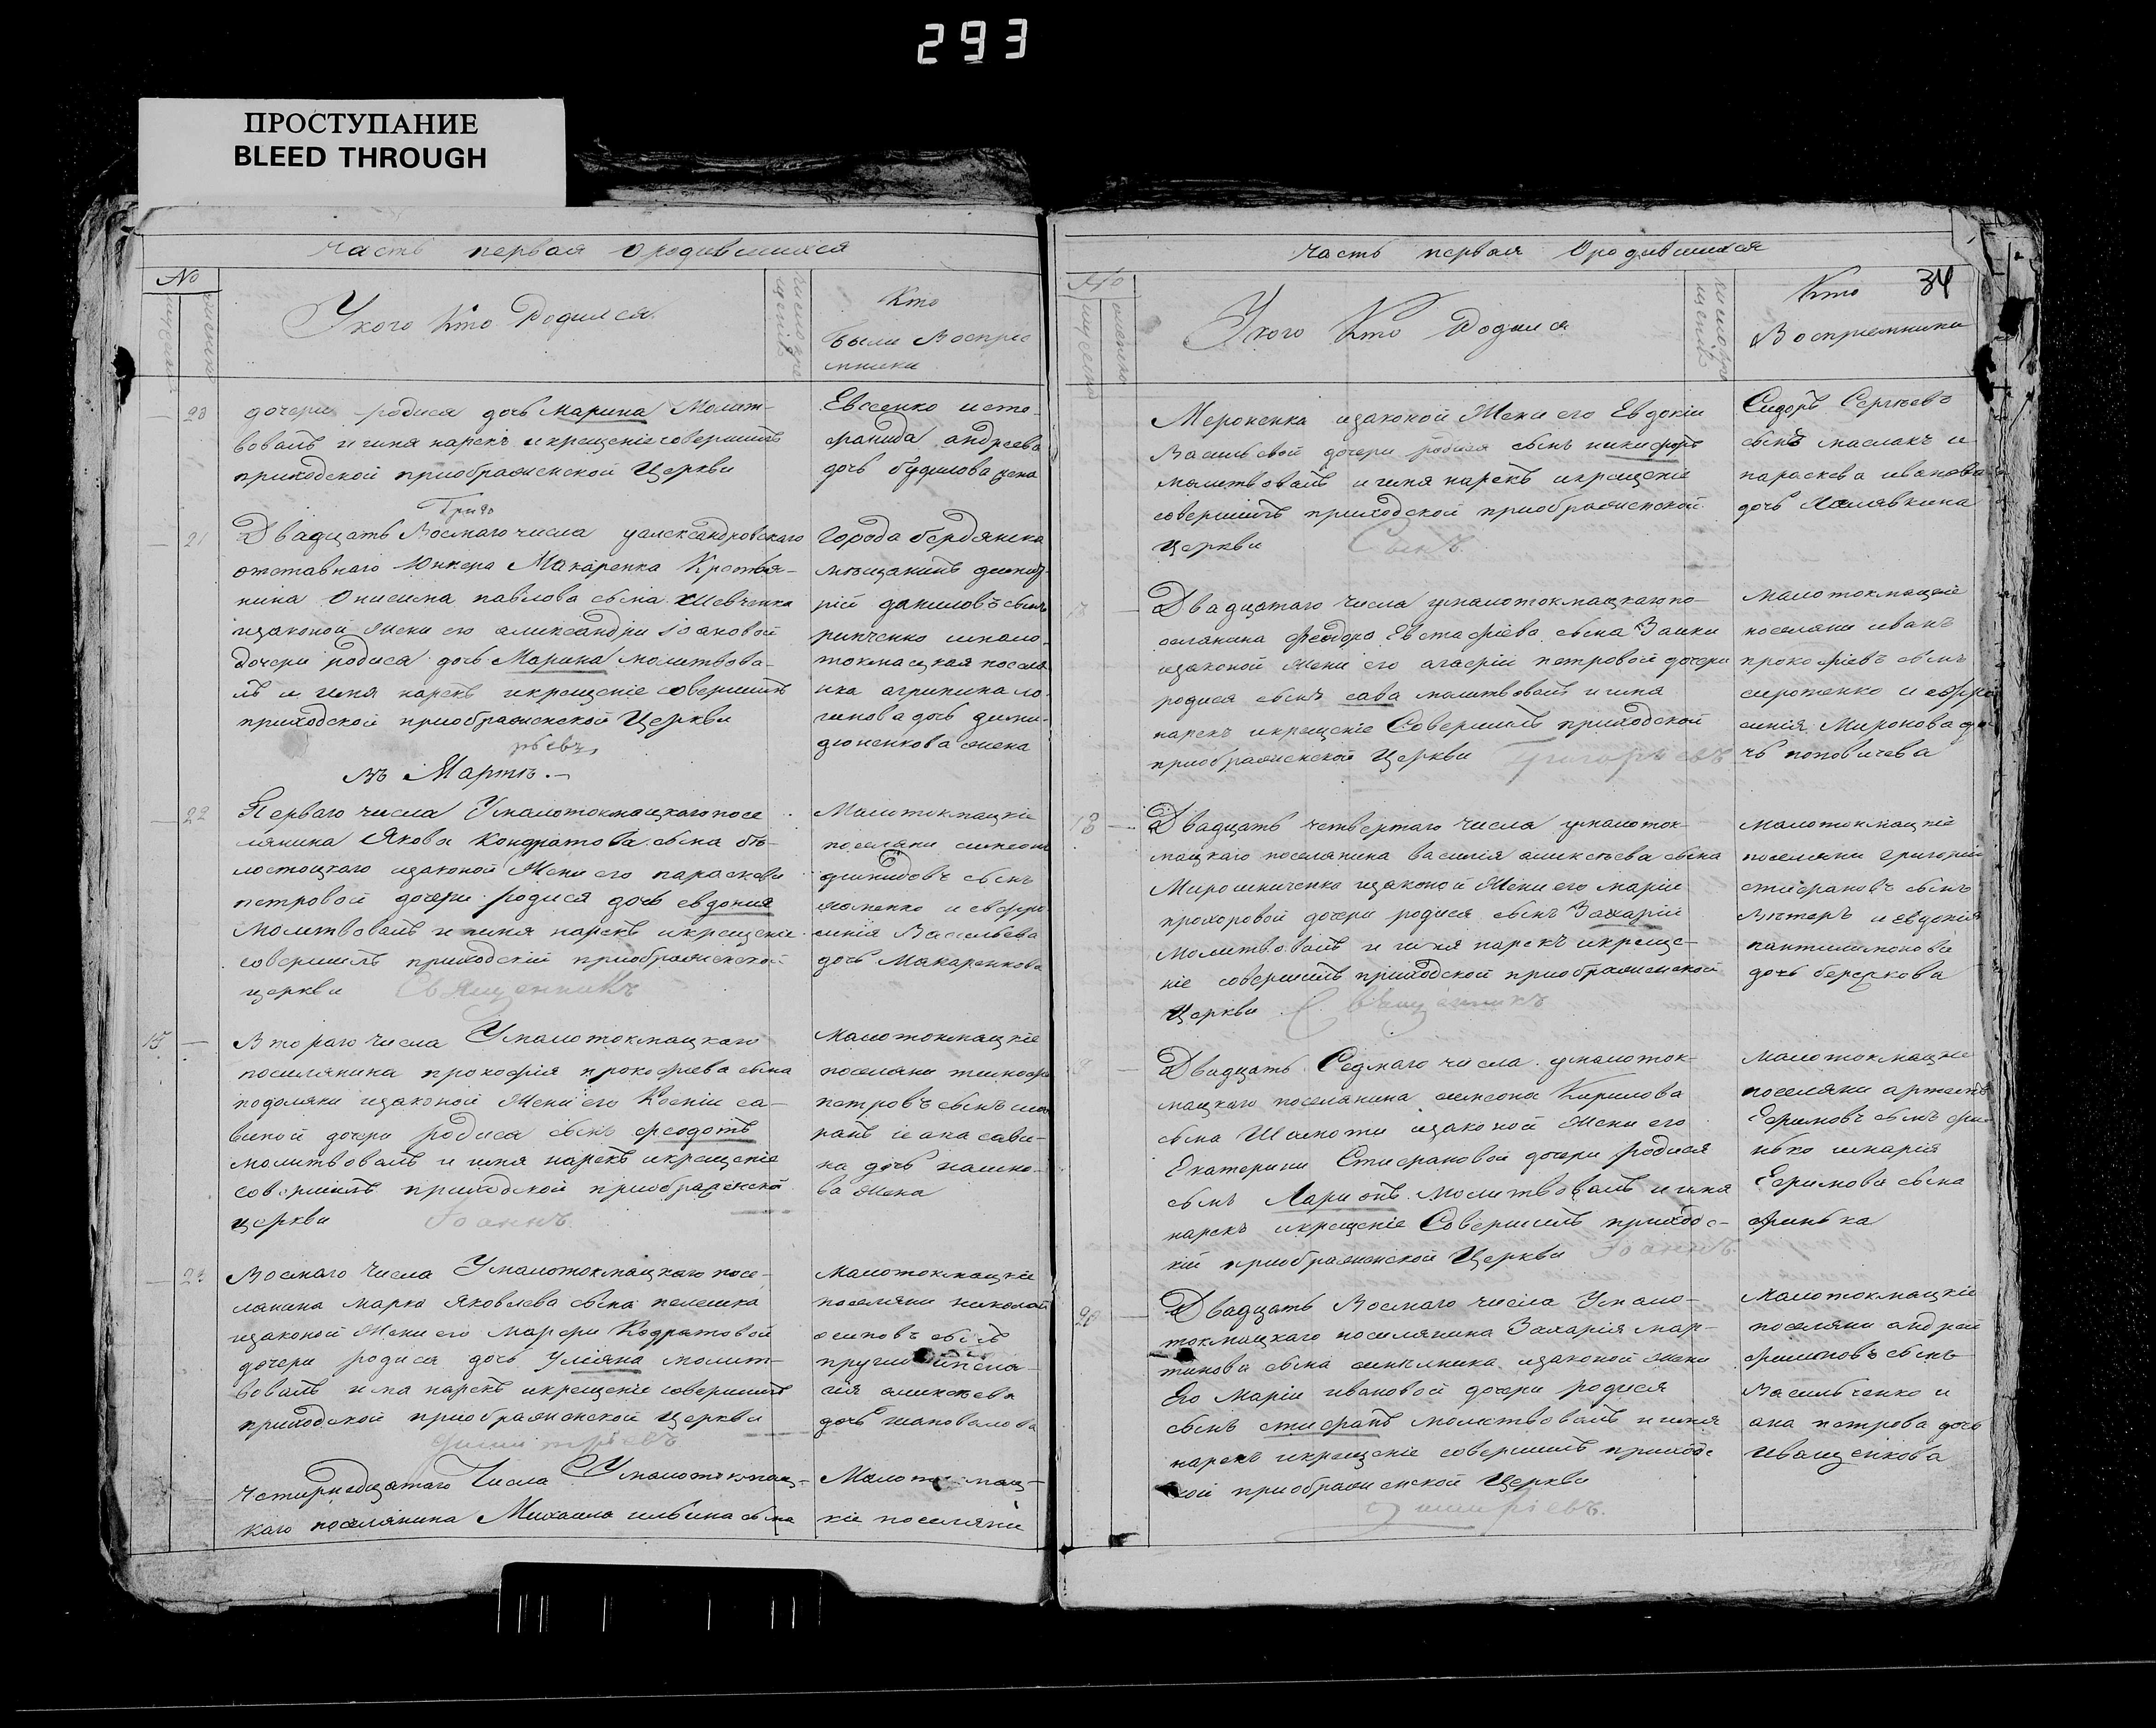 293
ПРОСТУПАНИЕ
BLEED THROUGH
часть первая о родившихся
No
У кого кто Родился
Кто
были Восприе
мники
20
дочери родися дочь Марина Молит-
вовалъ и имя нарекъ и крещение совершилъ
приходской приображенской Церкви
Евсеенко и сте-
фанида андреева
дочь
21
Двадцать Восмаго числа у александровскаго
отставнаго Юнкера Макаренка Крестья-
нина Онисима павлова сына Шевченка
изаконой Жени его александри Iоановой
дочери родися дочь Марина молитвова-
лъ и имя нарекъ и крещеніе совершилъ
приходской приображенской Церкви
города бердянска
мещанинъ дмит-
рій даниловъ сынъ
малo-
токмацкая поселя-
нка агрипина ло-
гинова дочь
жена
въ Мартѣ.
22
Перваго числа У малотокмацкаго посе
лянина Якова Кондратова сына бѣ-
лостоцкаго изаконой Жени его параскеви
петровой дочери родися дочь евдокия
Молитвовалъ и имя нарекъ и крещеніе
совершилъ приходскій приображенской
церкви Священникъ
Малотокмацкіе
поселяни симеонъ
сынъ
и евфро-
синія Васильева
дочь Макаренкова
15
Втораго числа У малотокмацкаго
поселянина прокофія прокофиева сына
подоляки изаконой Жени его Ксении са-
виной дочери родися сынъ федотъ
молитвовалъ и имя нарекъ и крещеніе
совершилъ приходской приображенской
церкви Іоаннъ
Малотокмацкіе
поселяни тимофей
петровъ сынъ
и ана сави-
на дочь
ва Жена
23
Восмаго числа У малотокмацкаго посе-
лянина марка Яковлева сына пелешка
изаконой Жени его Марфи Кодратовой
дочери родися дочь Улияна молит-
вовалъ има нарекъ и крещеніе совершилъ
приходской приображенской церкви
Димитріевъ
Малотокмацкіе
поселяни николай
осиповъ сынъ
алексѣева
дочь шаповалова
Четирнадцатаго Числа У малотокмац-
каго поселянина Михаила ильина сына
Малотокмац-
кіе поселяни
часть первая О родившихся
No
У кого Кто Родился
Кто
Восприемники
34
Мероненка изаконой Жени его Евдокіи
Васильевой дочери родися сынъ никифоръ
молитвовалъ и имя нарекъ и крещеніе
совершилъ приходской приображенской
Церкви
Сидоръ Сергѣевъ
сынъ маслакъ и
параскева иванова
дочь
Двадцатаго числа у малотокмацкаго по-
селянина Феодора Евстафіева сына Заики
изаконой Жени его агафіи петровой дочери
родися сынъ сава молитвовалъ и имя
нарекъ и крещеніе Совершилъ приходской
приображенской Церкви Григорьевъ
малотокмацкіе
поселяни иванъ
прокофіевъ сынъ
сироженко и евфро-
синія Миронова до-
чь поповичева
18
Двадцать четвертаго Числа у малоток-
мацкаго поселянина василія алексѣева сына
Мирошниченка изаконой Жени его маріи
прохоровой дочери родися сынъ Захарій
молитвовалъ и имя нарекъ и креще-
ніе совершилъ приходской приображенской
Церкви Священникъ
малотокмацкіе
поселяни григорій
стифановъ сынъ
Вѣтеръ и евдокія
пантилимонова
дочь
Двадцать Седмаго числа у малоток-
мацкаго поселянина симеона Кирилова
сына Шамоти изаконой Жени его
Екатерини Стифановой дочери родися
сынъ Ларионъ Молитвовалъ и имя
нарекъ и крещеніе Совершилъ приходс-
кій приображенской Церкви Іоаннъ
малотокмацкіе
поселяни артемъ
Ефимовъ сынъ фи-
нько и марія
Ефимова сына
финька
20
Двадцать Восмаго числа У мало-
токмацкаго поселянина Захарія мар-
тинова сына изаконой Жени
Его Маріи ивановой дочери родися
сынъ стифанъ молитвовалъ и имя
нарекъ и крещеніе совершилъ приходс
кой приображенской Церкви
Димитріевъ.
Малотокмацкіе
поселяни андрей
филиповъ сынъ
Васильченко и
ана петрова дочь
иващенкова